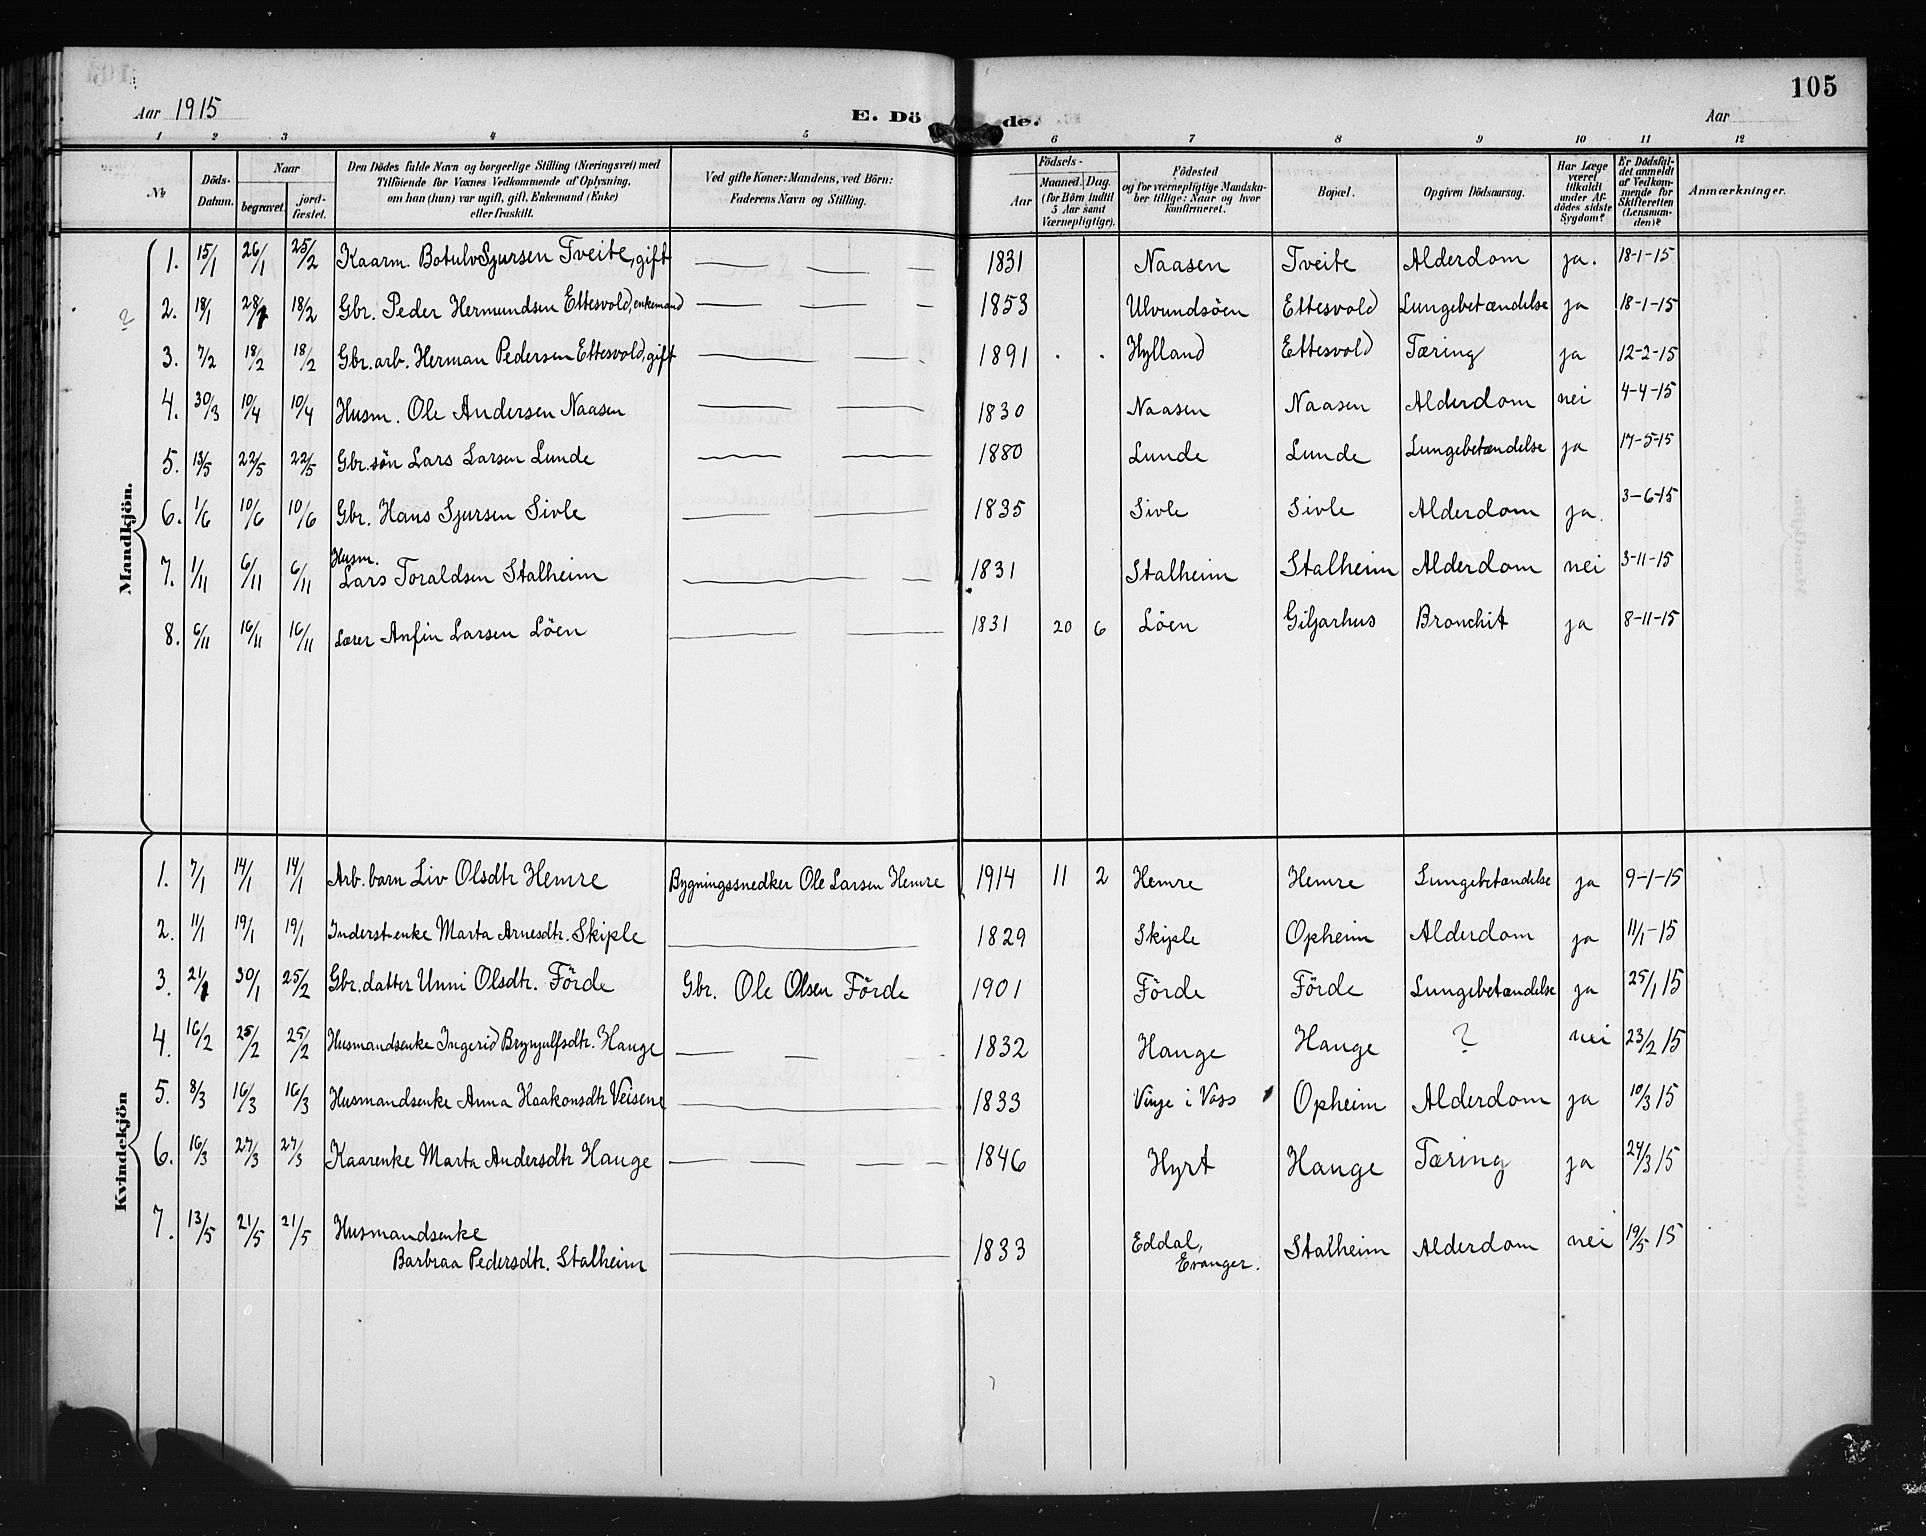 105
Aar 1915 E. Dö de. Aar
1 2 3 4 5 6 7 8 9 10 11 12
№ Döds-Datum. Naar begravet. jord-fæstet. Den Dödes fulde Navn og borgerlige Stilling (Næringsvei) med Tilföiende for Voxnes Vedkommende af Oplysning, om han (hun) var ugift, gift, Enkemand (Enke) eller fraskilt. Ved gifte Koner: Mandens, ved Börn: Faderens Navn og Stilling. Födsels- Aar Maaned. Dag. (for Börn indtil 5 Aar samt Værnepligtige). Födested og for værnepligtige Mandskaber tillige: Naar og hvor konfirmeret. Bopæl. Opgiven Dödsaarsag. Har Læge været tilkaldt under Afdödes sidste Sygdom? Er Dödsfaldet anmeldt af Vedkommende for Skifteretten (Lensmanden)? Anmærkninger.
Mandkjön.
1. 15/1 26/1 25/2 Kaarm. Botulv Sjursen Tveite, gift 1831 Naasen Tveite Alderdom ja. 18-1-15
2. 18/1 28/1 18/2 Gbr. Peder Hermundsen Ettesvold, enkemand 1853 Ulvundsöen Ettesvold Lungebetændelse ja 18-1-15
3. 7/2 18/2 18/2 Gbr. arb. Herman Pedersen Ettesvold, gift 1891 Hylland Ettesvold Tæring ja 12-2-15
4. 30/3 10/4 10/4 Husm. Ole Andersen Naasen 1830 Naasen Naasen Alderdom nei 4-4-15
5. 13/5 22/5 22/5 Gbr. sön Lars Larsen Lunde 1880 Lunde Lunde Lungebetændelse ja 17-5-15
6. 1/6 10/6 10/6 Gbr. Hans Sjursen Sivle 1835 Sivle Sivle Alderdom ja. 3-6-15
7. 1/11 6/11 6/11 Husm. Lars Toraldsen Stalheim 1831 Stalheim Stalheim Alderdom nei 3-11-15
8. 6/11 16/11 16/11 Lærer Anfin Larsen Löen 1831 20 6 Löen Giljarhus Bronchit ja 8-11-15
Kvindekjön
1. 7/1 14/1 14/1 Arb. barn Liv Olsdtr Hemre Bygningssnedker Ole Larsen Hemre 1914 11 2 Hemre Hemre Lungebetændelse ja 9-1-15
2. 11/1 19/1 19/1 Inderst-enke Marta Arnesdtr. Skiple 1829 Skiple Opheim Alderdom ja 11/1-15
3. 21/1 30/1 25/2 Gbr. datter Unni Olsdtr. Förde Gbr. Ole Olsen Förde 1901 Förde Förde Lungebetændelse ja 25/1 15
4. 16/2 25/2 25/2 Husmandsenke Ingerid Brynjulfsdtr. Hauge 1832 Hauge Hauge ? nei 23/2 15
5. 8/3 16/3 16/3 Husmandsenke Anna Haakonsdtr Veisene 1833 Vinje i Voss Opheim Alderdom ja 10/3 15
6. 16/3 27/3 27/3 Kaarenke Marta Andersdtr Hauge 1846 Hyrt Hauge Tæring ja 24/3 15
7. 13/5 21/5 21/5 Husmandsenke Barbraa Pedersdtr. Stalheim 1833 Eddal, Evanger. Stalheim Alderdom nei 19/5 15